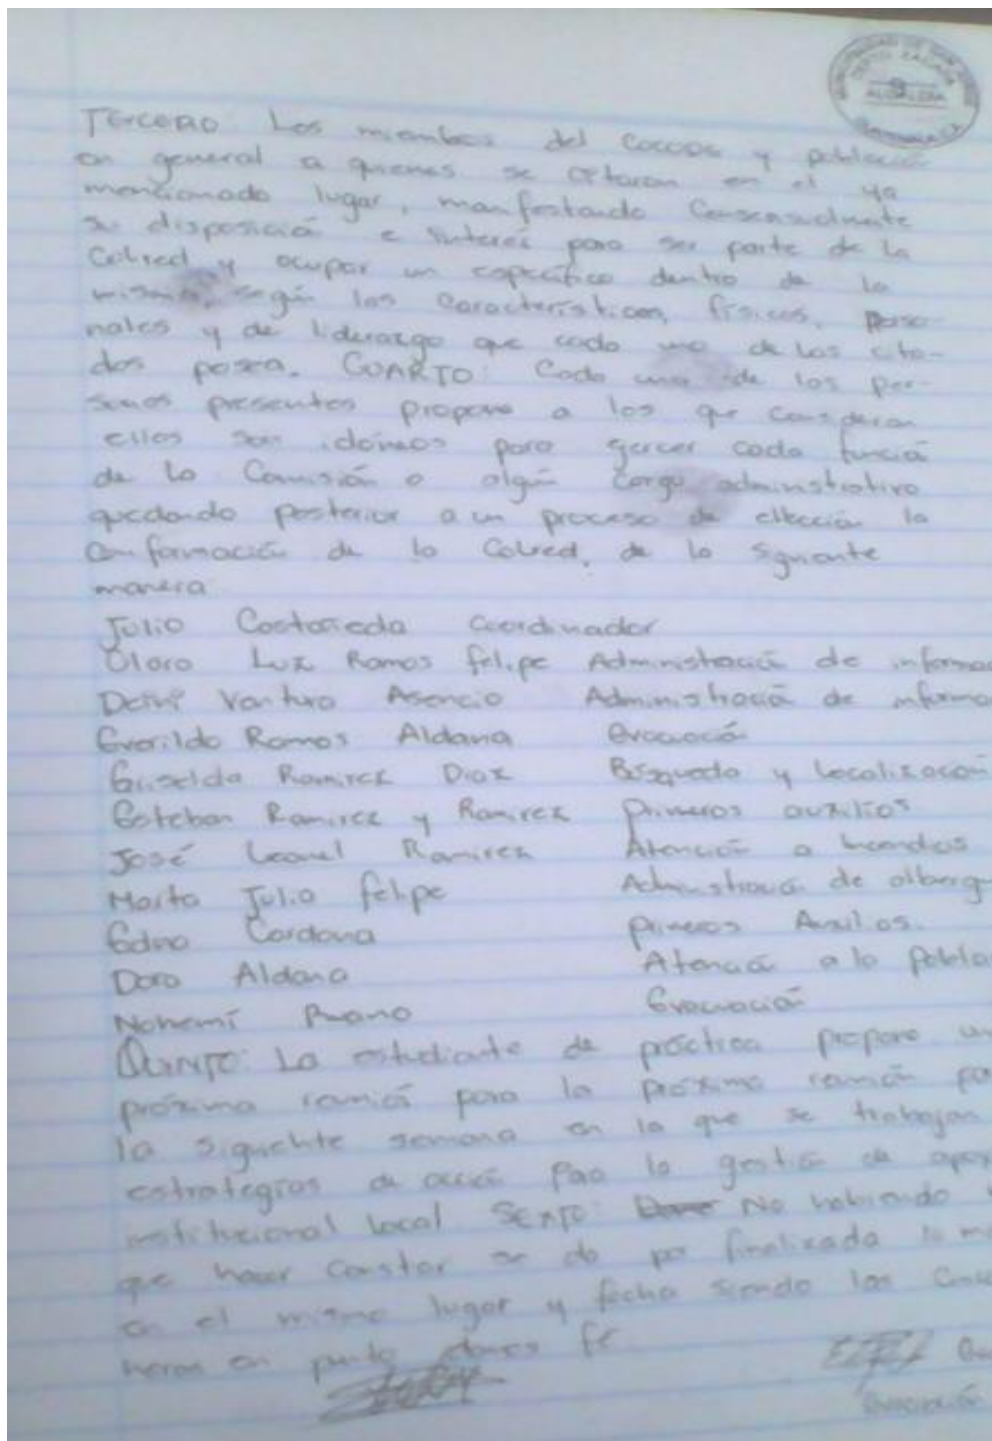 ALCALDIA
TERCERO: Los miembros del Cocode y població
en general a quienes se citaron en el ya
mencionado lugar, manifestando Consensualmente
su disposición e interés para ser parte de la
Colred y ocupar un específico dentro de la
misma, según las características, físicas, perso-
nales y de liderazgo que cada uno de los cita-
dos posea. CUARTO: Cada una de las per-
sonas presentes propone a los que consideran
ellos son idóneos para ejercer cada función
de la Comisión o algún cargo administrativo
quedando posterior a un proceso de elección la
Conformación de la Colred, de la siguiente
manera
Julio Castañeda Coordinador
Luz Ramos felipe Administración de informac
Ventura Asencio Administración de informa
Everildo Ramos Aldana Evacuación
Griselda Ramirez Diaz Búsqueda y localización
Esteban Ramirez y Ramirez primeros auxilios
José Leonel Ramirez Atención a incendios
Marta Julia felipe Administración de alberg
Edna Cardona primeros Auxilios.
Dora Aldana Atención a la pobla
Nohemí Ruano Evacuación
QUINTO: La estudiante de práctica propone un
próxima reunión para la próxima reunión pa
la siguiente semana en la que se trabajan
estrategias de acción para la gestión de apo
institucional local SEXTO: No habiendo
que hacer constar se da por finalizada la
en el mismo lugar y fecha siendo las
horas en punto damos fé.